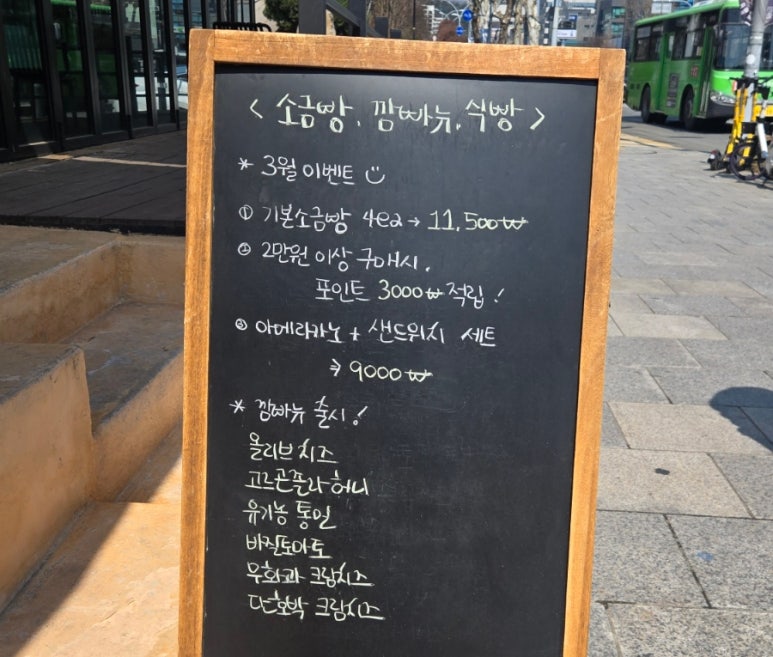 < 소금빵. 깜빠뉴. 식빵 >
* 3월 이벤트
① 기본소금빵 4ea → 11,500₩
② 2만원 이상 구매시.
포인트 3000₩ 적립!
③ 아메리카노 + 샌드위치 세트
⇒ 9000₩
* 깜빠뉴 출시!
올리브치즈
고르곤졸라 허니
유기농 통밀
바질토마토
무화과 크림치즈
단호박 크림치즈